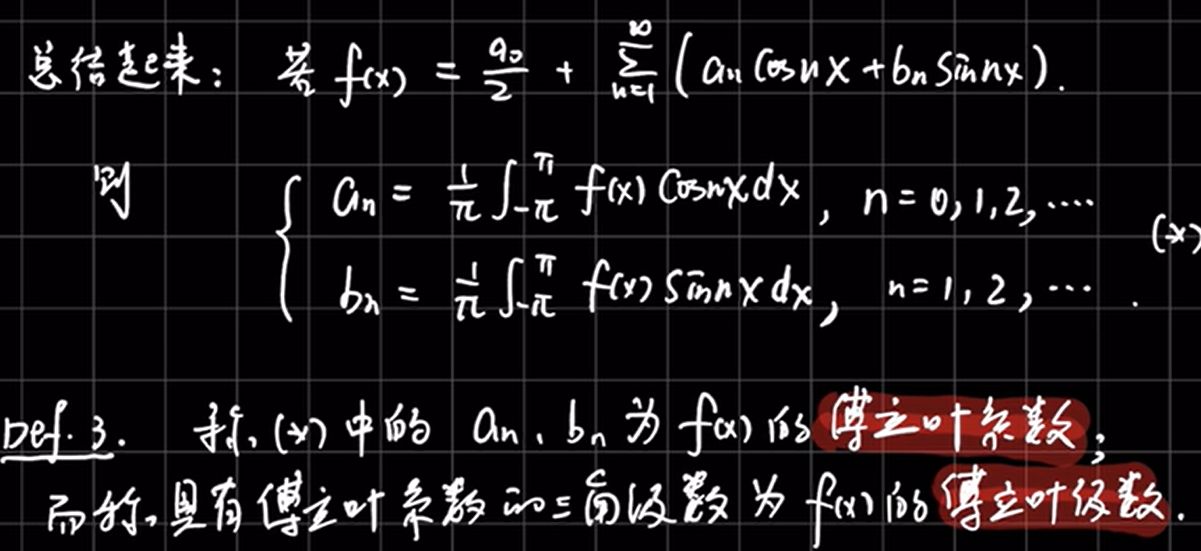 总结起来: 若 f(x) = a₀/2 + ∑_{n=1}^{∞} (aₙ cosnx + bₙ sinnx).
则 { aₙ = 1/π ∫_{-π}^{π} f(x) cosnx dx, n = 0, 1, 2, ....
bₙ = 1/π ∫_{-π}^{π} f(x) sinnx dx, n = 1, 2, ... . (*)
Def. 3. 称 (*) 中的 aₙ、bₙ 为 f(x) 的 傅立叶系数;
而称具有傅立叶系数的三角级数为 f(x) 的傅立叶级数.